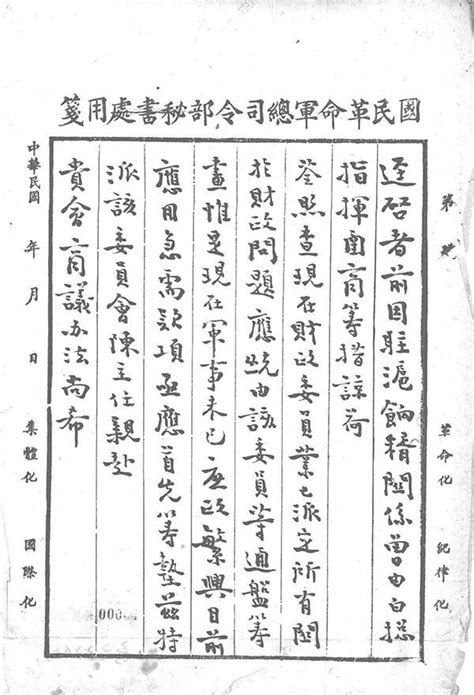 國民革命軍總司令部秘書處用箋
第 號 革命化 紀律化
逕啓者前因駐滬餉糈關係曾由白總
指揮函商籌措諒荷
照查現在財政委員業已派定所有關
於財政問題應統由該委員等通盤籌
畫惟是現在軍事未已庶政繁興目前
應用急需款項亟應首先籌墊茲特
派該委員會陳主任親赴
貴會商議办法尚希
中華民國 年 月 日 集體化 國際化